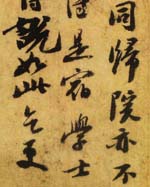 同歸院亦不
是宿學士
說如此乞更